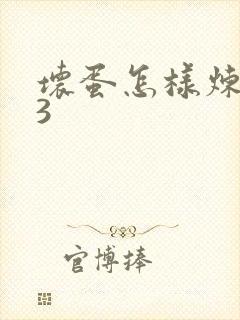 壞蛋怎樣煉
3
官博捧